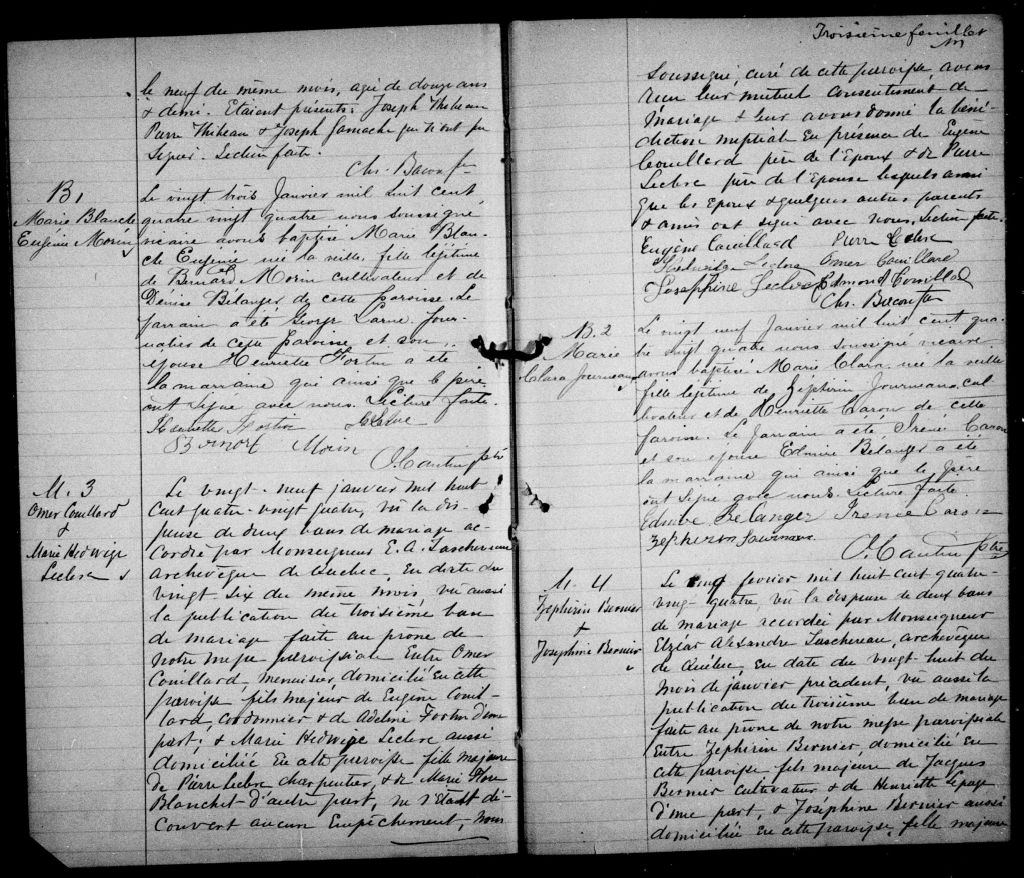 le neuf du même mois, agé de douze ans
& demi. Etaient présents: Joseph Thibeau
Pierre Thibeau & Joseph Gamache qui n'ont pu
signer. Lecture faite.
Chs. Bacon
B 1
Marie Blanche
Eugénie Morin
Le vingt trois Janvier mil huit cent
quatre vingt quatre nous soussigné
vicaire avons baptisé Marie Blan-
che Eugénie née la veille, fille légitime
de Bernard Morin cultivateur et de
Denise Bélanger de cette paroisse. Le
parrain a été George Larue jour-
nalier de cette paroisse et son
épouse Henriette Fortin a été
la marraine qui ainsi que le père
ont signé avec nous. Lecture faite.
Henriette Fortin
Bernard Morin
ptre
M. 3
Omer Couillard
&
Marie Hedwige
Leclerc
Le vingt-neuf janvier mil huit
cent quatre-vingt quatre, vu la dis-
pense de deux bans de mariage ac-
cordée par Monseigneur E. A. Taschereau
archevêque de Québec, en date du
vingt six du même mois, vu aussi
la publication du troisième ban
de mariage faite au prône de
notre messe paroissiale Entre Omer
Couillard, menuisier domicilié en cette
paroisse, fils majeur de Eugène Couil-
lard, cordonnier & de Adeline Fortin d'une
part; & Marie Hedwige Leclerc aussi
domiciliée en cette paroisse fille majeure
de Pierre Leclerc charpentier, & de Marie Flore
Blanchet d'autre part, ne s'étant dé-
couvert aucun Empêchement, nous
Troisième feuillet
soussigné, curé de cette paroisse, avons
reçu leur mutuel consentement de
Mariage & leur avons donné la béné-
diction nuptiale en présence de Eugène
Couillard père de l'Epoux & de Pierre
Leclerc père de l'Epouse lesquels ainsi
que les Epoux & quelques autres parents
& amis ont signé avec nous. Lecture faite.
Eugène Couillard Pierre Leclerc
Hedwidge Leclerc Omer Couillard
Josephine Leclerc Edmond Couillard
Chs. Bacon
B. 2
Marie
Clara Journeaux
Le vingt neuf Janvier mil huit cent qua-
tre vingt quatre nous soussigné vicaire
avons baptisé Marie Clara née la veille
fille légitime de Zéphirin Journeaux, cul-
tivateur et de Henriette Caron de cette
paroisse. Le parrain a été Irénée Caron
et son épouse Edmire Bélanger a été
la marraine qui ainsi que le père
ont signé avec nous. Lecture faite
Edmire Belanger Irenée Caron
Zepherin Journeaux
ptre
M. 4
Zéphirin Bernier
+
Joséphine Bernier
Le février mil huit cent quatre-
vingt quatre, vu la dispense de deux bans
de mariage accordée par Monseigneur
Elzéar Alexandre Taschereau, archevêque
de Québec, en date du vingt-huit du
mois de janvier précédent, vu aussi la
publication du troisième ban de mariage
faite au prône de notre messe paroissiale
Entre Zéphirin Bernier, domicilié en
cette paroisse, fils majeur de Jacques
Bernier cultivateur & de Henriette Lepage
d'une part, & Joséphine Bernier aussi
domiciliée en cette paroisse, fille majeure